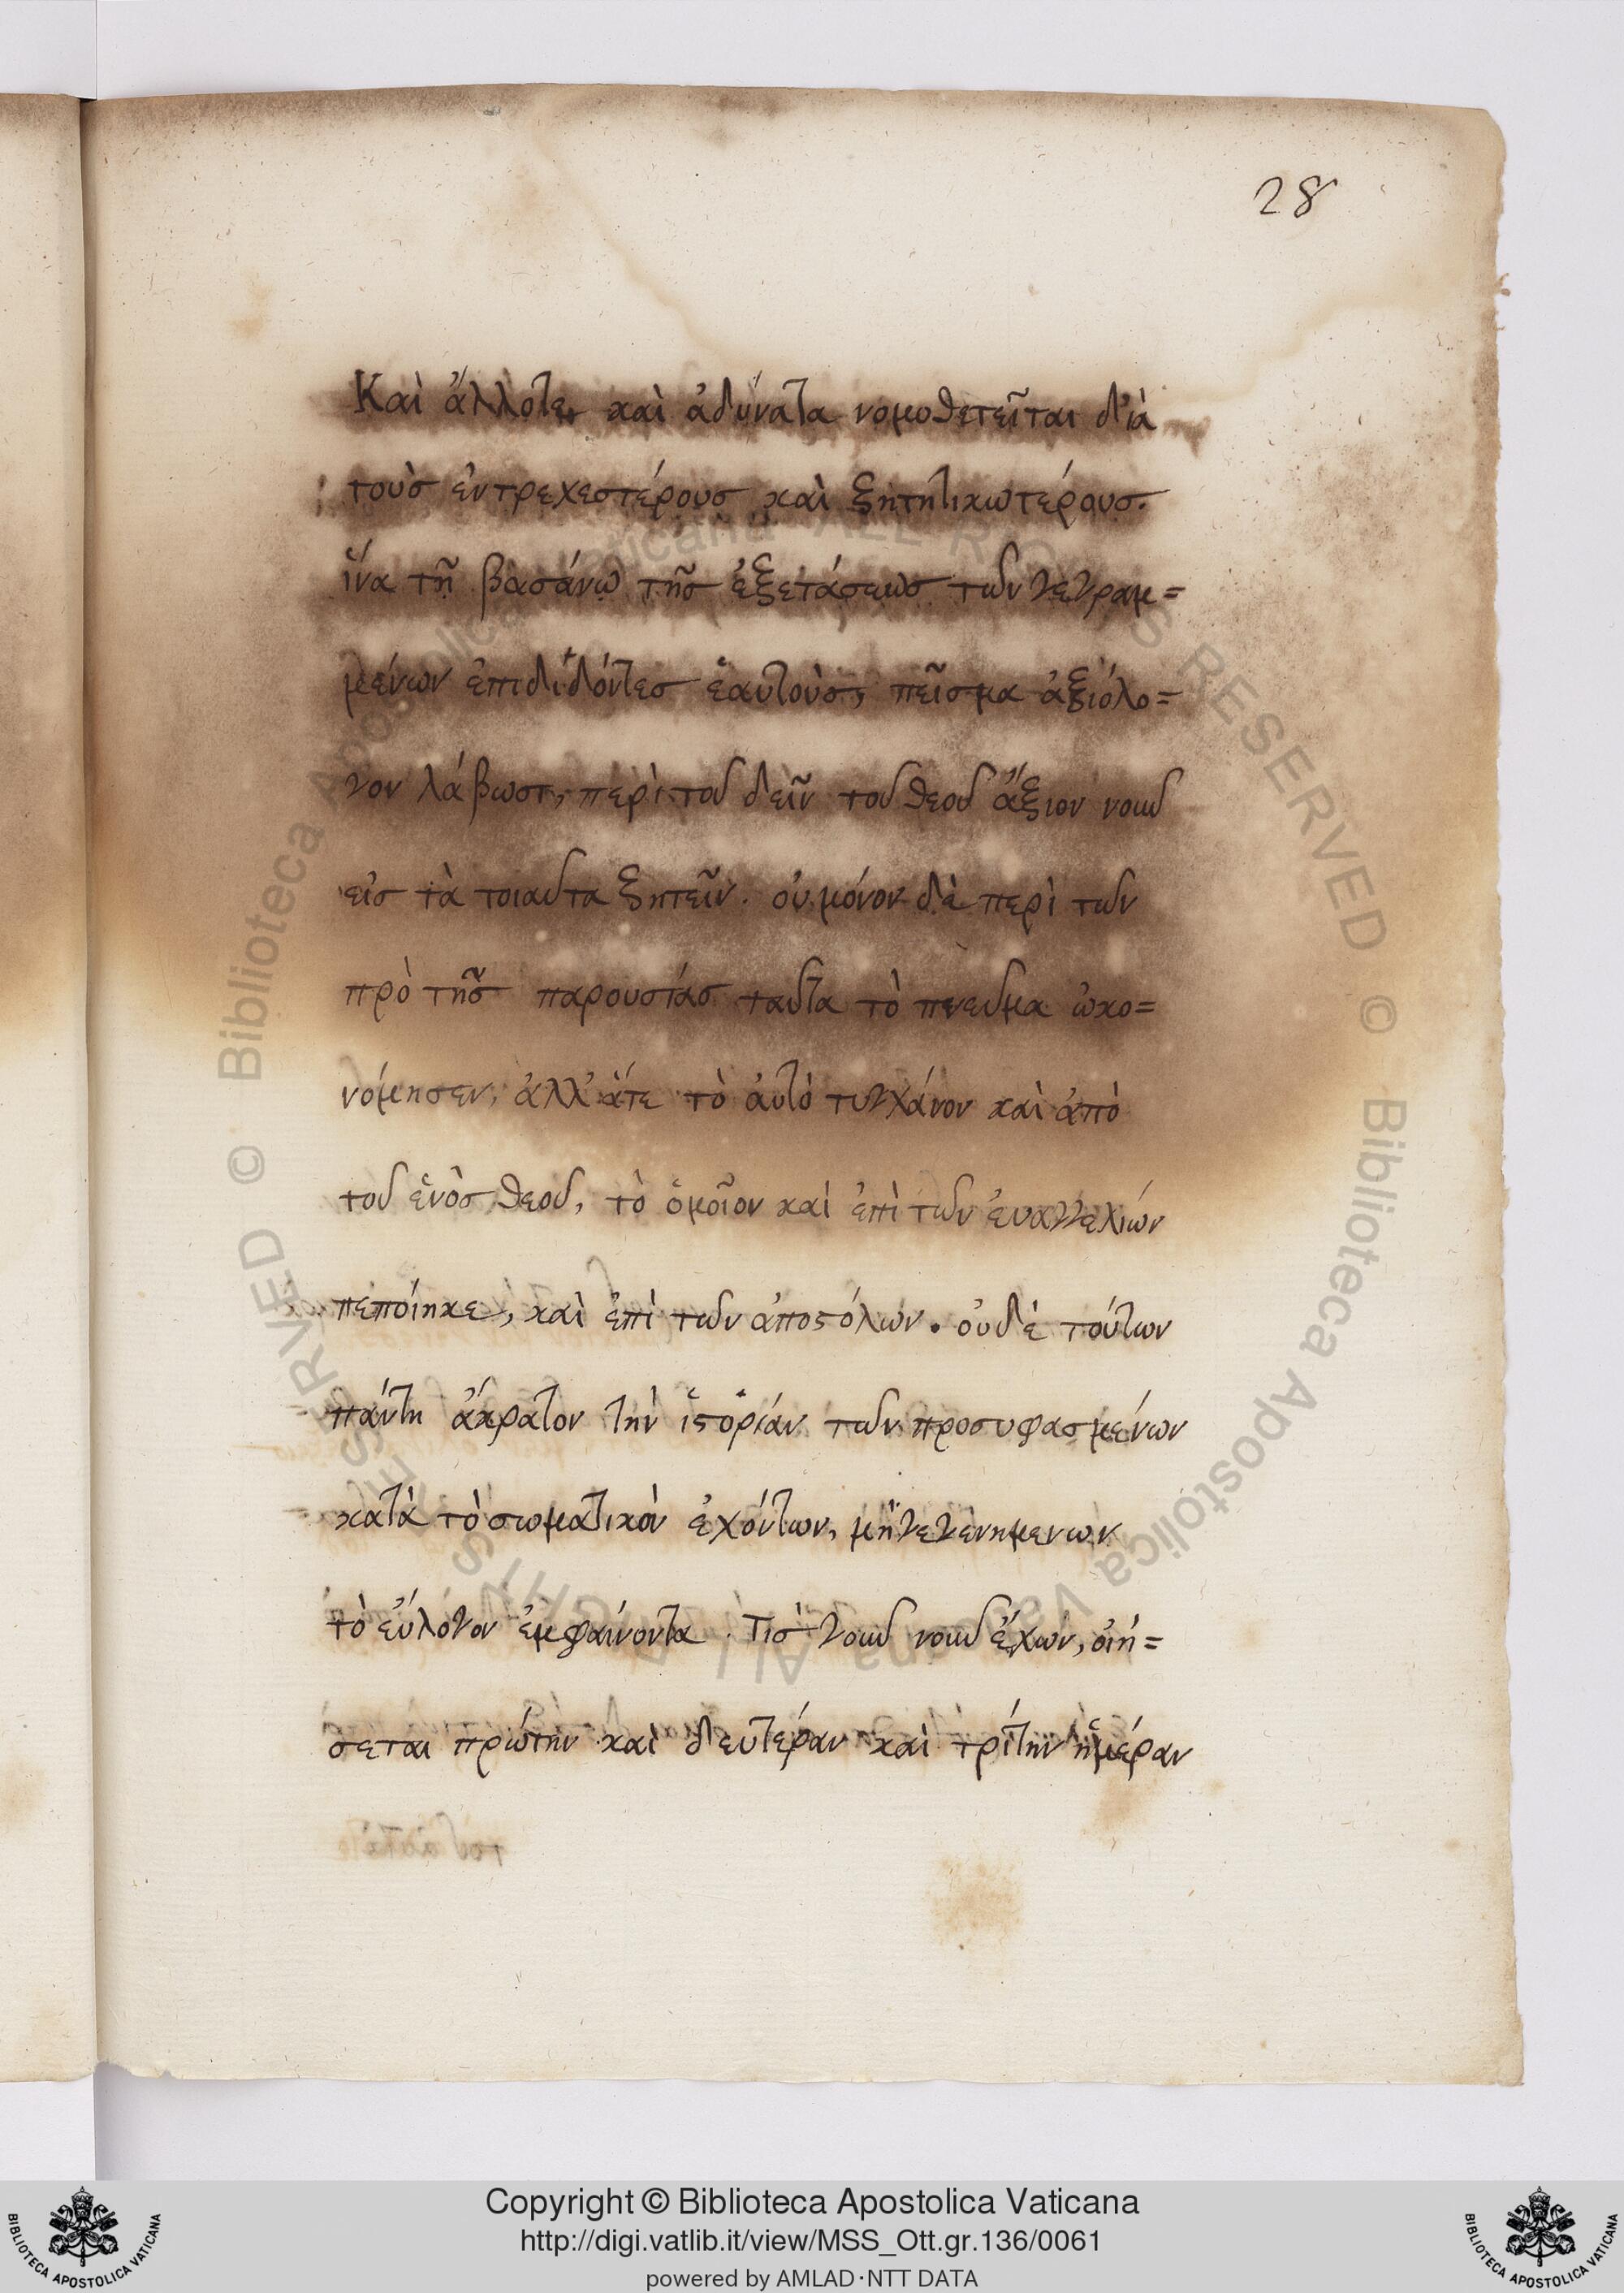 28
Καὶ ἄλλοτε, καὶ ἀδύνατα νομοθετεῖται διὰ
τοὺσ ἐντρεχεστέρουσ καὶ ζητητικωτέρουσ.
ἵνα τῇ βασάνῳ τῆσ ἐξετάσεωσ τῶν γεγραμ=
μένων ἐπιδιδόντεσ ἑαυτοὺσ, πεῖσμα ἀξιόλο=
γον λάβωσι, περὶ τοῦ δεῖν τοῦ θεοῦ ἄξιον νοῦν
εἰσ τὰ τοιαῦτα ζητεῖν. οὐ μόνον δὲ περὶ τῶν
πρὸ τῆσ παρουσίασ ταῦτα τὸ πνεῦμα ὠκο=
νόμησεν, ἀλλ' ἅτε τὸ ἀυτὸ τυγχάνον καὶ ἀπὸ
τοῦ ἑνὸσ θεοῦ, τὸ ὁμοῖον καὶ ἐπὶ τῶν ἐυαγγελιών
πεποίηκε, καὶ ἐπὶ τῶν ἀποστόλων. οὐδὲ τούτων
πάντη ἄκρατον τὴν ἱστορίαν τῶν προσυφασμένων
κατὰ τὸ σωματικὸν ἐχόντων, μὴ γεγενημενων
τὸ εὔλογον ἐμφαίνοντα. Τισ γοῦν νοῦν ἔχων, οἰή=
σεται πρώτην καὶ δευτέραν καὶ τρίτην ἡμέραν
Copyright © Biblioteca Apostolica Vaticana
http://digi.vatlib.it/view/MSS_Ott.gr.136/0061
powered by AMLAD·NTT DATA
BIBLIOTECA APOSTOLICA VATICANA
BIBLIOTECA APOSTOLICA VATICANA